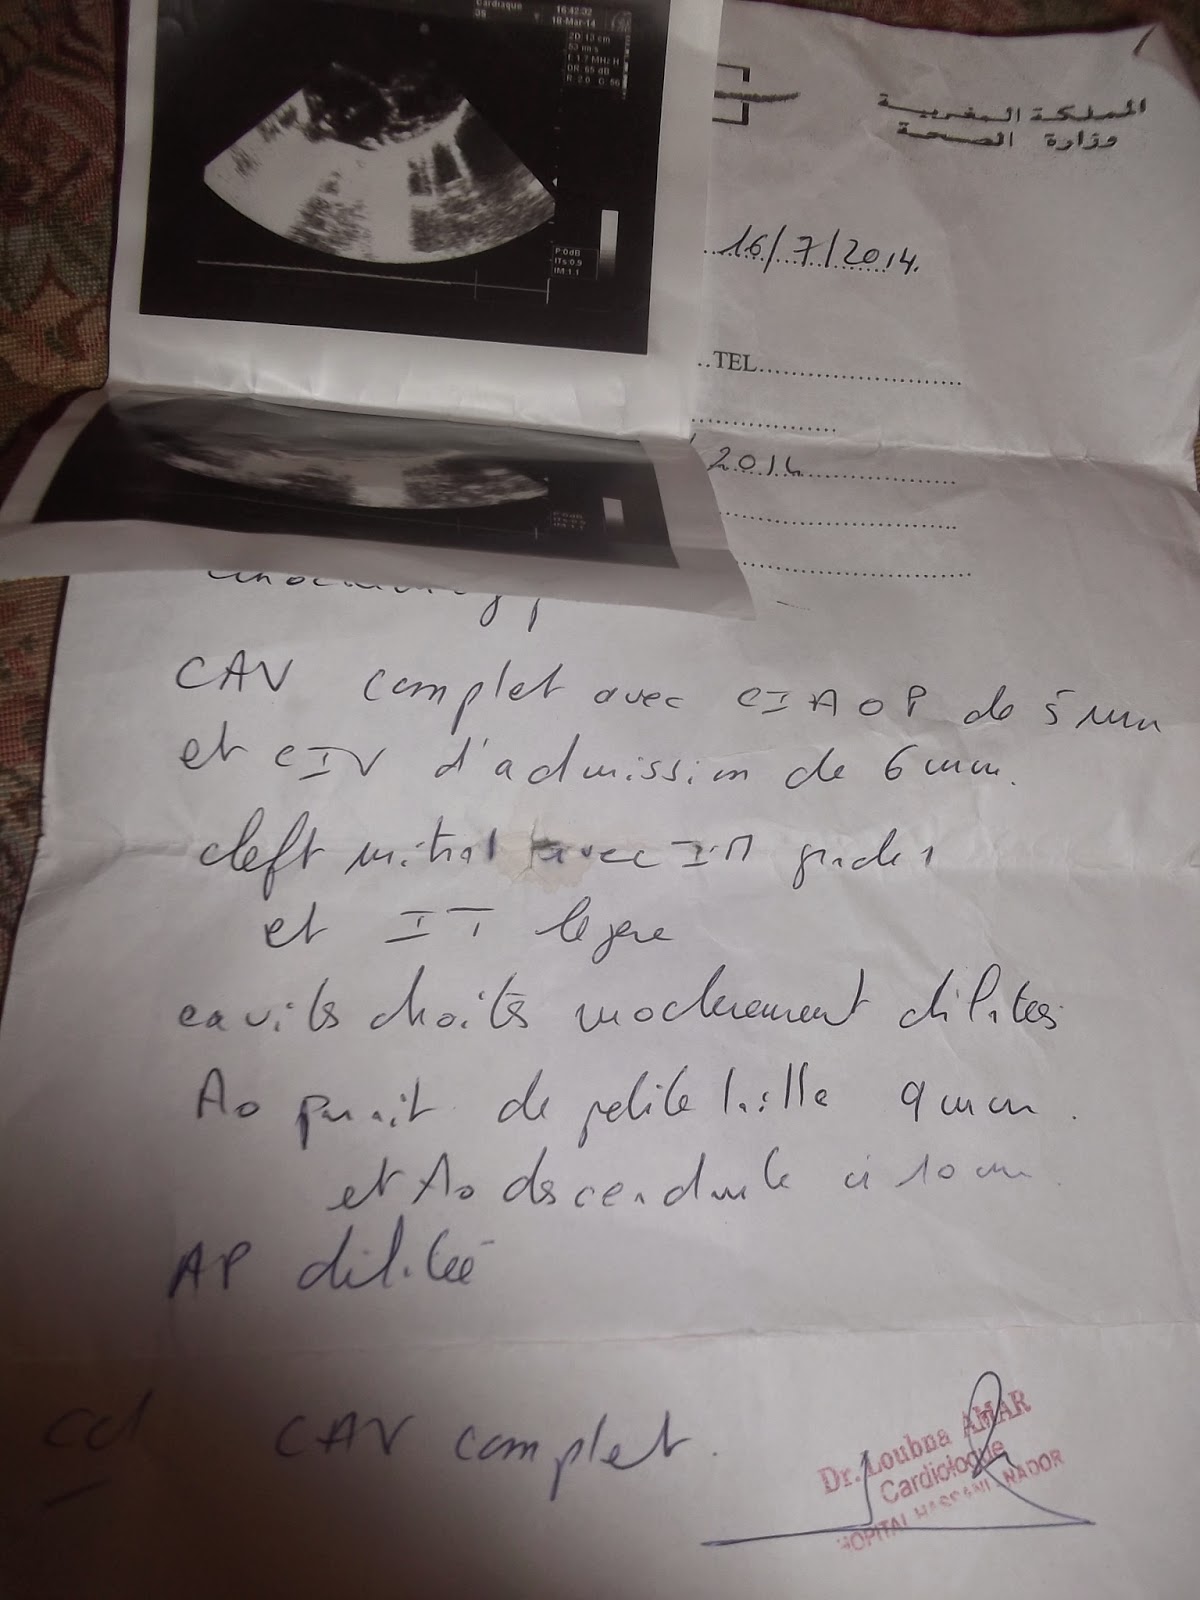 Cardiaque 16:42:32
18-Mar-14
2D 13 cm
DR: 65 dB
P:0dB
ITs:0.9
IM:1.1
المملكة المغربية
وزارة الصحة
16/7/2014.
TEL
2014
CAV complet avec CIA OP de 5 mm
et CIV d'admission de 6 mm.
cleft mitral avec IM grade 1
et IT légère
cavités droites modérément dilatées
Ao parait de petite taille 9 mm.
et Ao descendante à 10 mm.
AP dilatée
ccl CAV complet.
Dr. Loubna AMAR
Cardiologue
HOPITAL HASSANI - NADOR